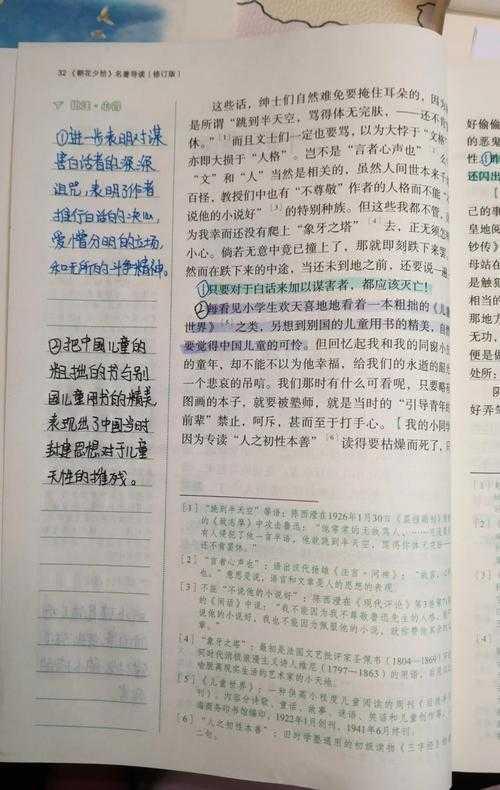 32 《朝花夕拾》名著导读(修订版)
批注·心得
①进一步表明对谋
害白话者的深深
诅咒,表明了作者
推行白话的决心,
爱憎分明的立场,
和无所畏的斗争精神。
②把中国儿童的
粗拙的书与别
国儿童用书的精美
表现出了中国当时
封建思想对于儿童
天性的摧残。
这些话,绅士们自然难免要掩住耳朵的,因为
是所谓“跳到半天空,骂得体无完肤,——还不肯
休。”[1]而且文士们一定也要骂,以为大悖于“文格”
亦即大损于“人格”。岂不是“言者心声也”
“文”和“人”当然是相关的,虽然人间世本来千
百怪,教授们中也有“不尊敬”作者的人格而不能“
说他的小说好”[3]的特别种族。但这些我都不管,
为我幸而还没有爬上“象牙之塔”[4]去,正无须怎
小心。倘若无意中竟已撞上了,那就即刻跌下来罢
然而在跌下来的中途,当还未到地之前,还要说一遍
①只要对于白话来加以谋害者,都应该灭亡!
②每看见小学生欢天喜地地看着一本粗拙的《儿童
世界》[5]之类,另想到别国的儿童用书的精美,自然
要觉得中国儿童的可怜。但回忆起我和我的同窗小
的童年,却不能不以为他幸福,给我们的永逝的韶光
一个悲哀的吊唁。我们那时有什么可看呢,只要略
图画的本子,就要被塾师,就是当时的“引导青年的
前辈”禁止,呵斥,甚而至于打手心。【我的小同学
因为专读“人之初性本善”[6]读得要枯燥而死了,只
[1]“跳到半天空”等语:陈西滢在1926年1月30日《晨报副刊》
的《致志摩》中攻击鲁迅:
有人侵犯了他一言半语,他就跳到半天空,骂得你体无完肤
还不肯罢休。”
[2]“言者心声也”:语出汉代扬雄《法言·问神》:“故言,心
也。”意思是说,语言和文章是人的思想的表现
[3]不能“不说他的小说好”:陈西滢在《现代评论》第3卷第
的《闲话》中说:“我不能因为我不尊敬鲁迅先生的人格,
说他的小说好,我也不能因为佩服他的小说,就称赞他其余
章。”
[4]“象牙之塔”:最初是法国文艺批评家圣佩韦(1804—1869)
同时代消极浪漫主义诗人维尼(1797—1863)的用语,后
喻脱离现实生活的艺术家的小天地。
[5]《儿童世界》:一种供高小程度儿童阅读的周刊(后
刊),内容分诗歌、童话、故事、谜语、笑话和儿童创作等,
海商务印书馆编印,1922年1月创刊,1941年6月终刊。
[6]“人之初性本善”:旧时学塾通用的初级读物《三字经》
二句。
好偷偷
的恶鬼
②
还闪出
己的
皇地阅
钞传》
母站在
是触犯
相对的
那地方
无功,
便哭
处所:
好弄笔